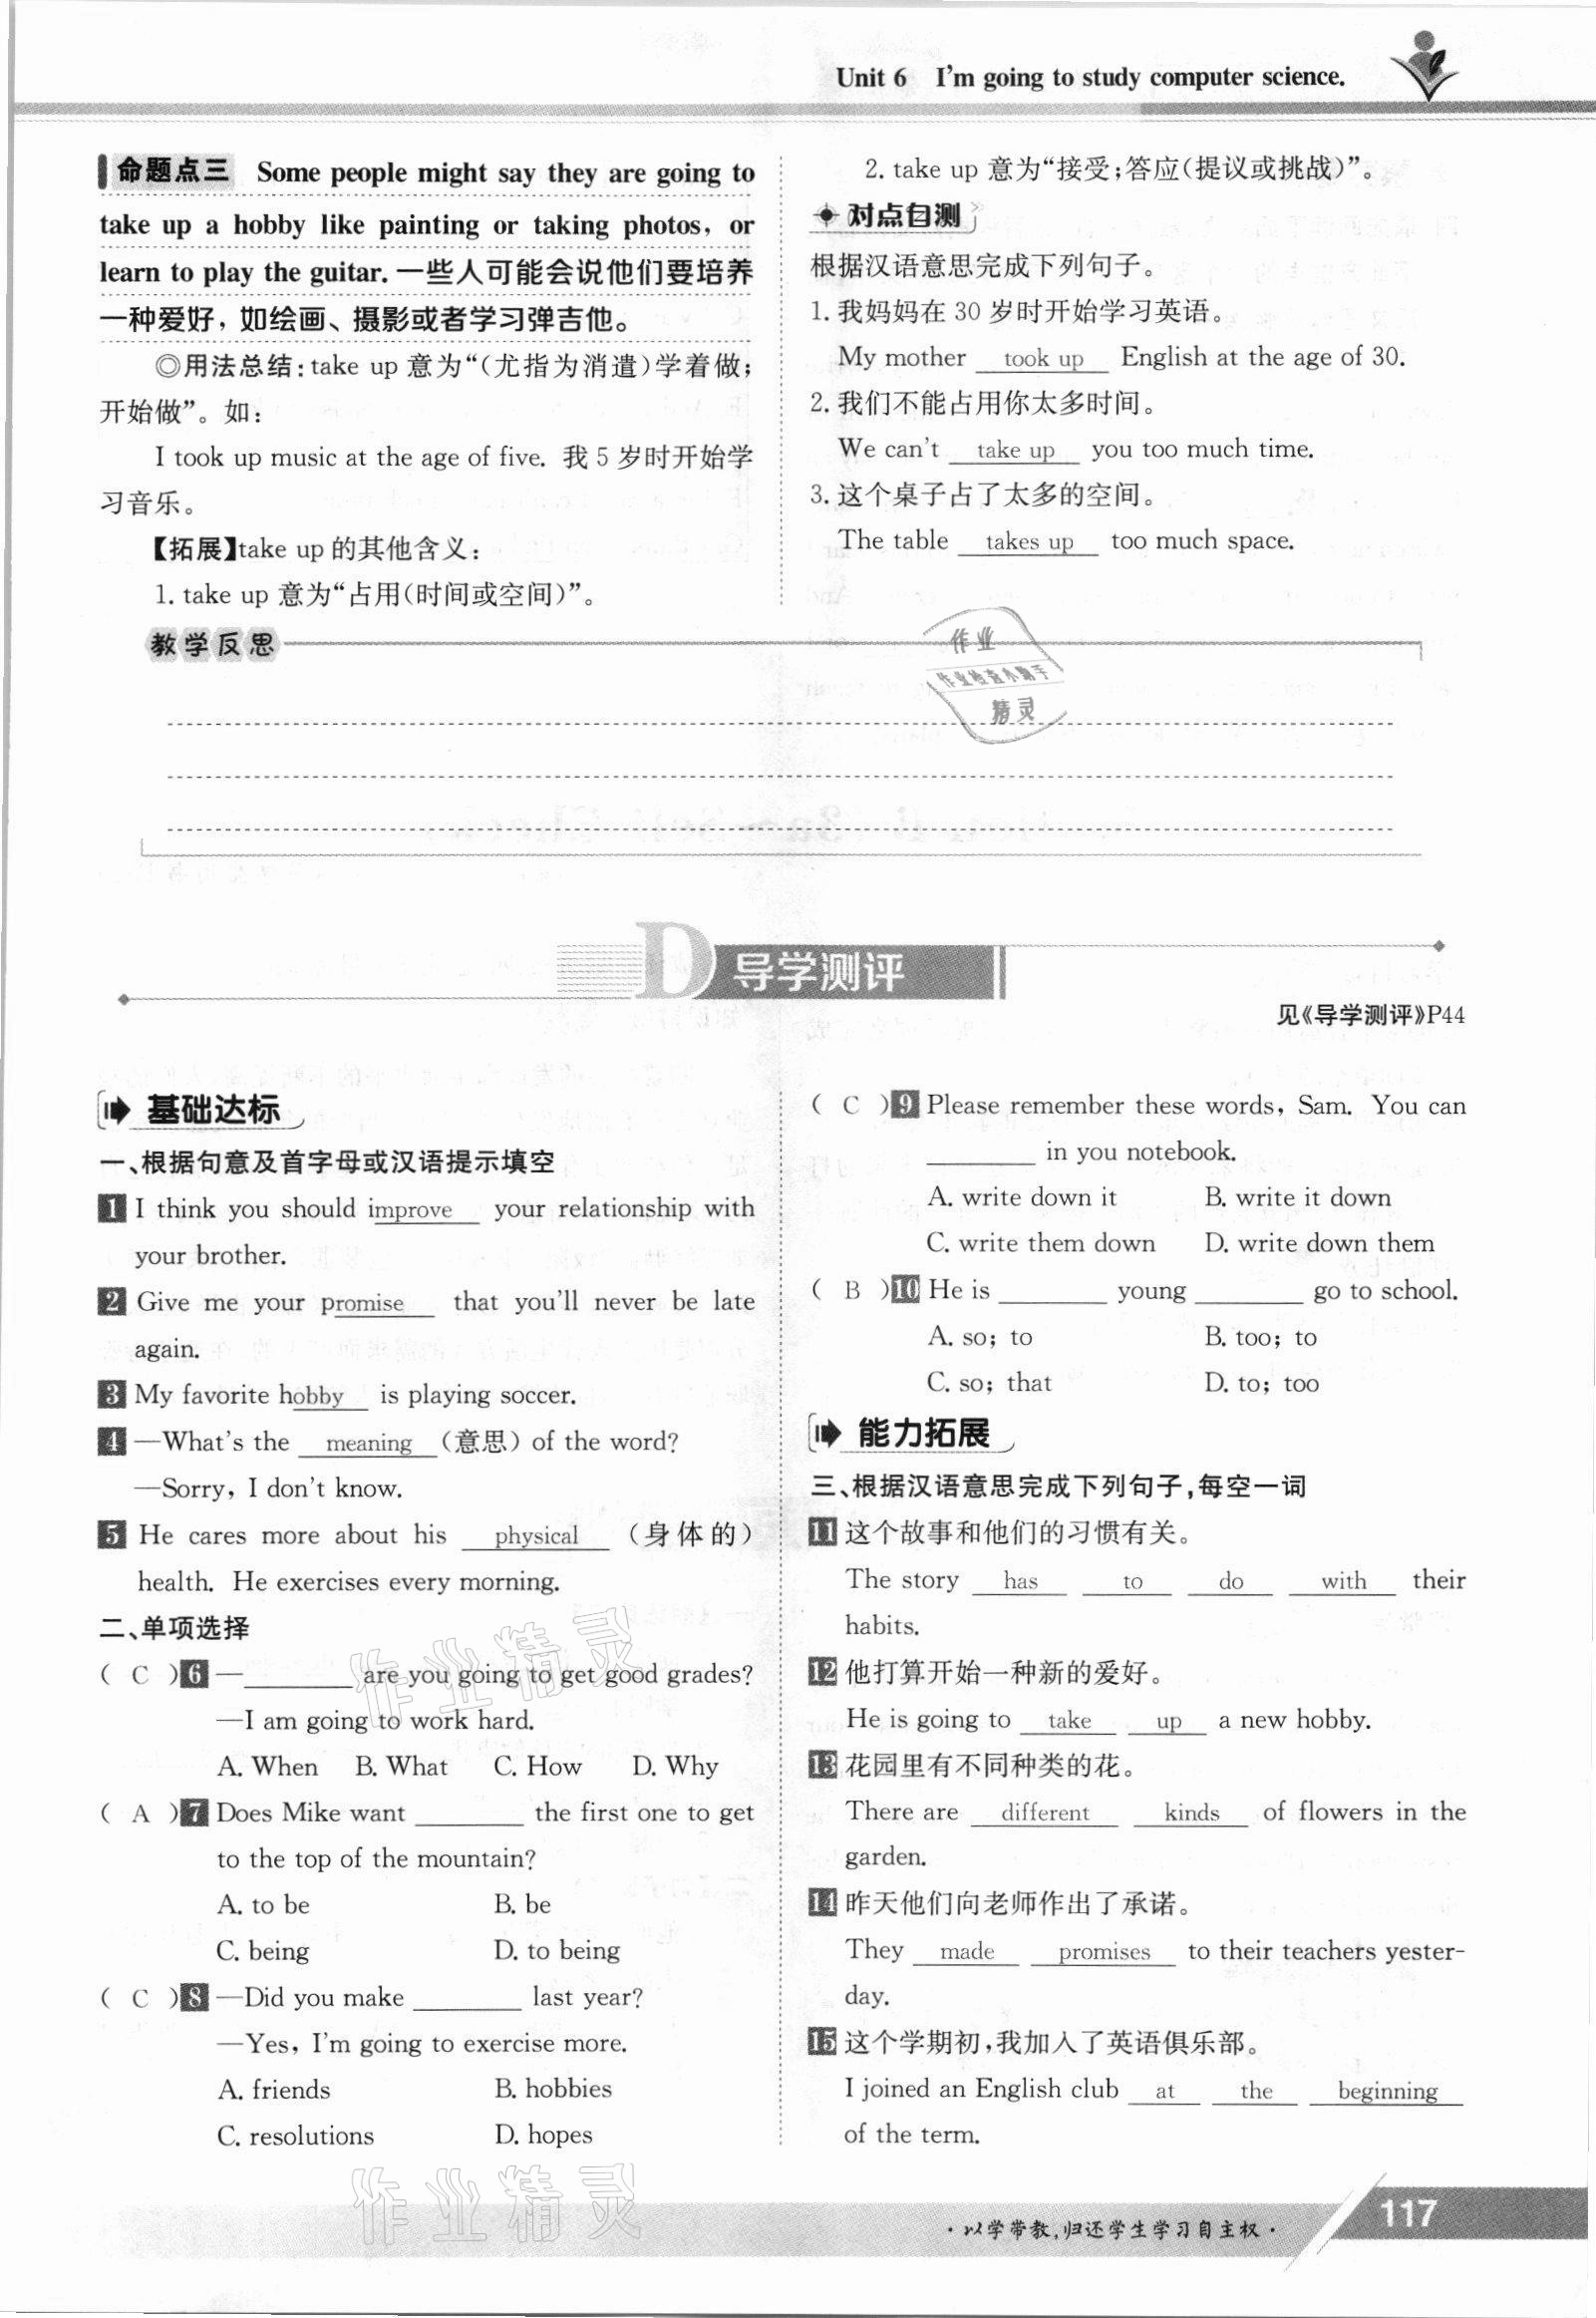 Unit 6 I'm going to study computer science.
命题点三 Some people might say they are going to
take up a hobby like painting or taking photos, or
learn to play the guitar. 一些人可能会说他们要培养
一种爱好，如绘画、摄影或者学习弹吉他。
◎用法总结：take up 意为“（尤指为消遣）学着做；
开始做”。如：
I took up music at the age of five. 我 5 岁时开始学
习音乐。
【拓展】take up 的其他含义：
1. take up 意为“占用（时间或空间）”。
2. take up 意为“接受；答应（提议或挑战）”。
对点自测
根据汉语意思完成下列句子。
1. 我妈妈在 30 岁时开始学习英语。
My mother took up English at the age of 30.
2. 我们不能占用你太多时间。
We can't take up you too much time.
3. 这个桌子占了太多的空间。
The table takes up too much space.
教学反思
作业
作业检查小助手
精灵
D 导学测评
见《导学测评》P44
基础达标
一、根据句意及首字母或汉语提示填空
1 I think you should improve your relationship with
your brother.
2 Give me your promise that you'll never be late
again.
3 My favorite hobby is playing soccer.
4 —What's the meaning （意思） of the word?
—Sorry, I don't know.
5 He cares more about his physical （身体的）
health. He exercises every morning.
二、单项选择
( C )6 —________ are you going to get good grades?
—I am going to work hard.
A. When B. What C. How D. Why
( A )7 Does Mike want ________ the first one to get
to the top of the mountain?
A. to be B. be
C. being D. to being
( C )8 —Did you make ________ last year?
—Yes, I'm going to exercise more.
A. friends B. hobbies
C. resolutions D. hopes
( C )9 Please remember these words, Sam. You can
________ in you notebook.
A. write down it B. write it down
C. write them down D. write down them
( B )10 He is ________ young ________ go to school.
A. so; to B. too; to
C. so; that D. to; too
能力拓展
三、根据汉语意思完成下列句子，每空一词
11 这个故事和他们的习惯有关。
The story has to do with their
habits.
12 他打算开始一种新的爱好。
He is going to take up a new hobby.
13 花园里有不同种类的花。
There are different kinds of flowers in the
garden.
14 昨天他们向老师作出了承诺。
They made promises to their teachers yester-
day.
15 这个学期初，我加入了英语俱乐部。
I joined an English club at the beginning
of the term.
作业精灵
作业精灵
·以学带教，归还学生学习自主权·
117